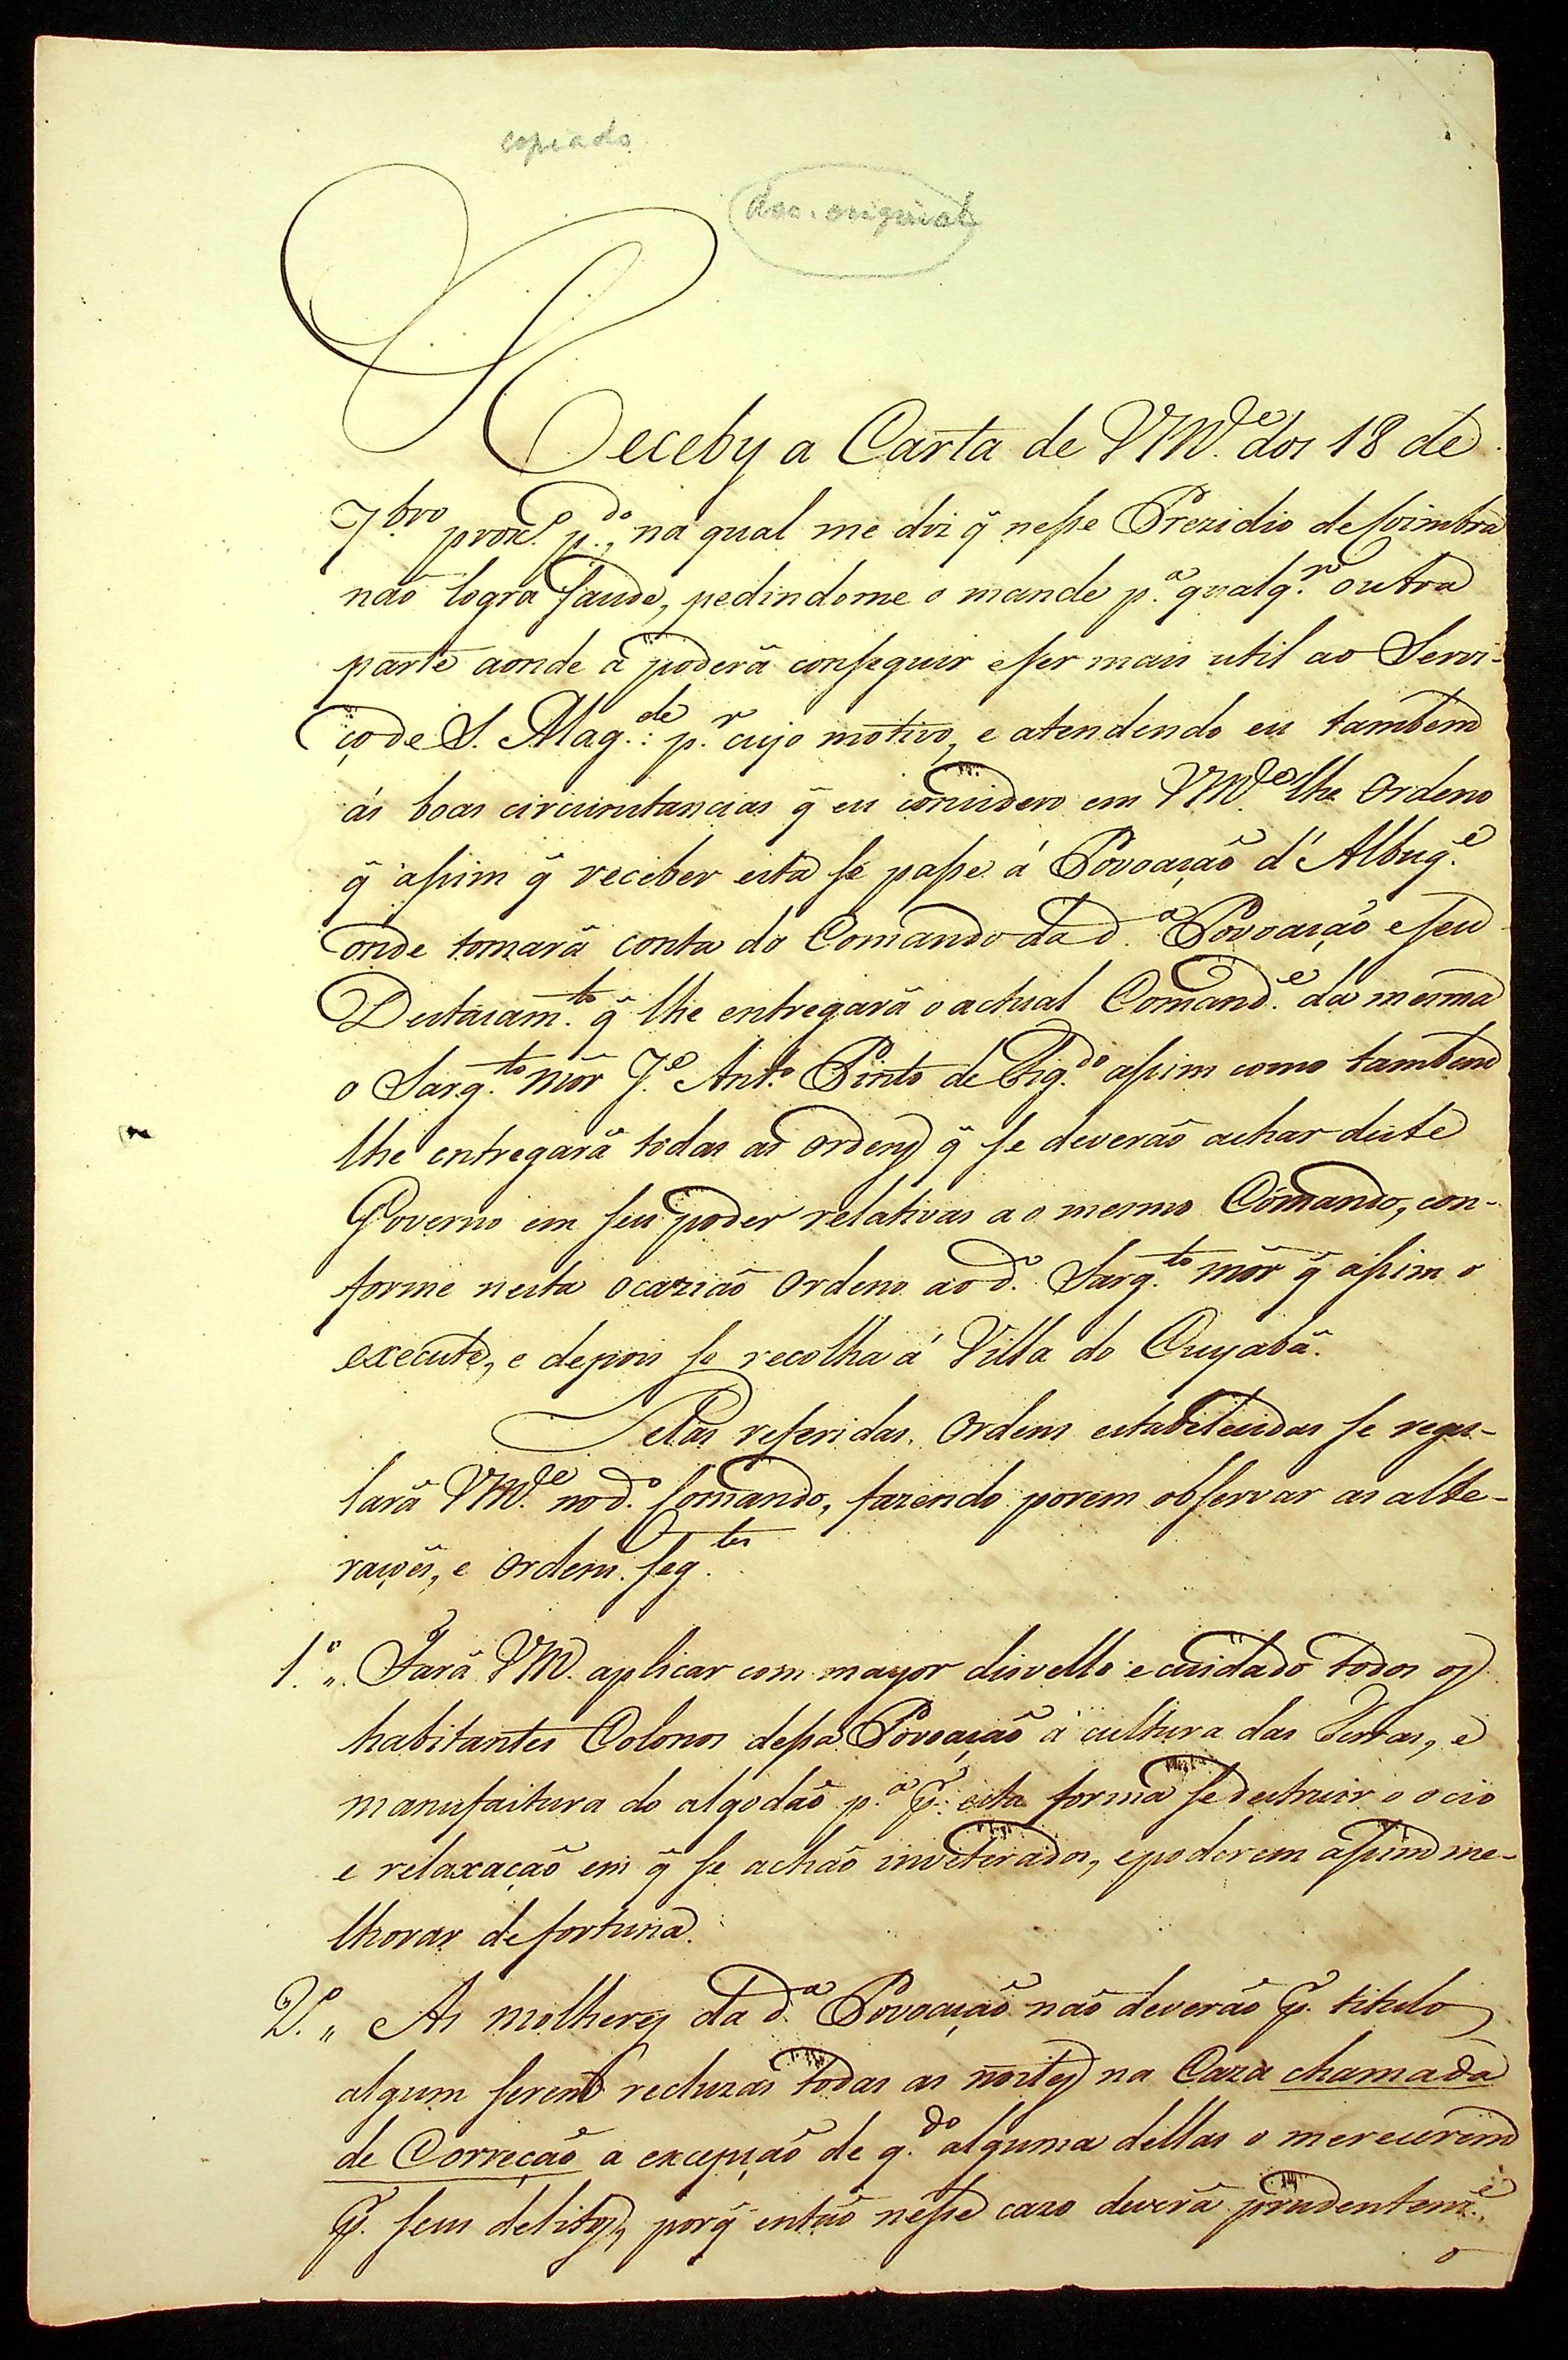 copiado
doc. original
Receby a Carta de VM.ce dos 18 de
7.bro prox.o p.do, na qual me diz q̃ nesse Prezidio de Coimbra
não logra saude, pedindome o mande p.a qualq.r outra
parte aonde a poderá conseguir e ser mais util ao Servi-
ço de S. Mag.de: p.r cujo motivo, e atendendo eu tambem
ás boas circunstancias q̃ eu considero em VM.ce lhe Ordeno
q̃ assim q̃ receber esta se passe á Povoação d'Albuq.e
onde tomará conta do Comando da d.a Povoação e seu
Destacam.to q̃ lhe entregará o actual Comand.e da mesma
o Sarg.to mór J.e Ant.o Pinto de Fig.do assim como tambem
lhe entregará todas as ordens q̃ se deverão achar deste
Governo em seu poder relativas ao mesmo Comando, con-
forme nesta ocazião Ordeno ao d.o Sarg.to mór q̃ assim o
execute, e depois se recolha á Villa do Cuyabá.
Pelas referidas Ordens estabelecidas se regu-
lará VM.ce no d.o Comando, fazendo porem observar as alte-
raçoẽs, e ordens seg.tes
1.o „ Fará VM. aplicar com mayor disvello e cuidado todos os
habitantes Colonos dessa Povoação á cultura das Terras, e
manufaitura do algodão p.a p.r esta forma se destruir o ocio
e relaxação em q̃ se achão inveterados, e poderem assim me-
lhorar de fortuna.
2.o „ As molheres da d.a Povoação não deverão p.r titulo
algum serem recluzas todas as noites na Caza chamada
de Correção a excepção de q.do alguma dellas o merecerem
p.r seus delitos, porq̃ então nesse cazo deverá prudentem.e
o